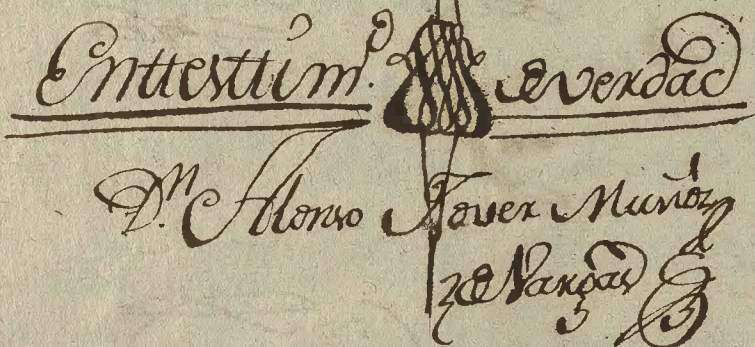 En ttesttimº. de verdad
Dn. Alonso Jover Muñoz
de Vargas